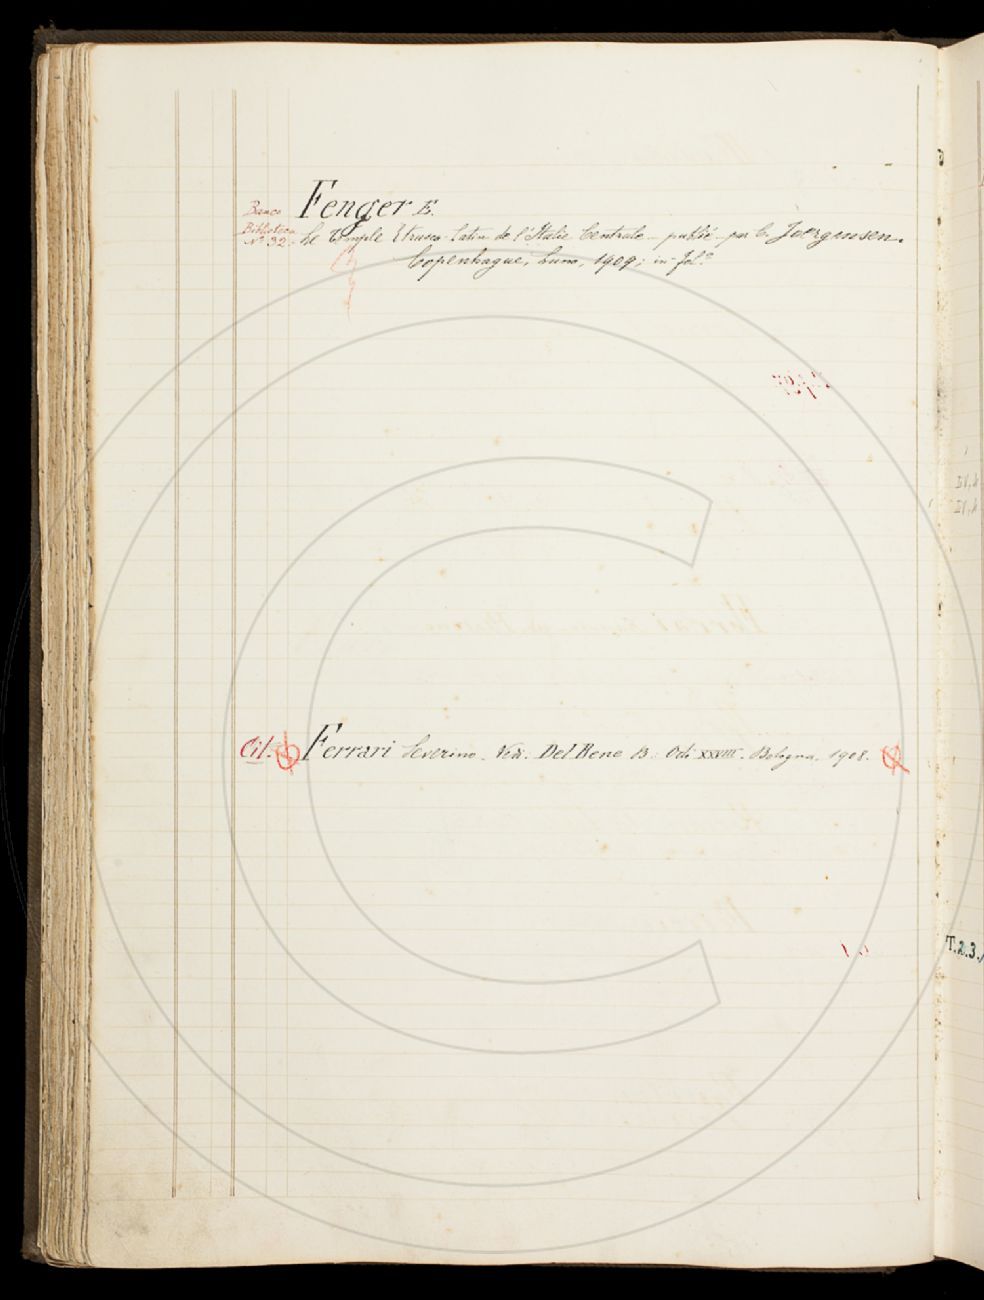 Fenger E.
Banco
Biblioteca
N.º 32.
Le Temple Etrusco-Latin de l'Italie Centrale - publié par C. Joergensen.
Copenhague, Luno, 1909; in-fol.º
Cil. Ferrari Severino. Vedi. Del Bene B. Odi XXVIII. Bologna, 1908.
IV, 4
IV, 4
T.2.3.